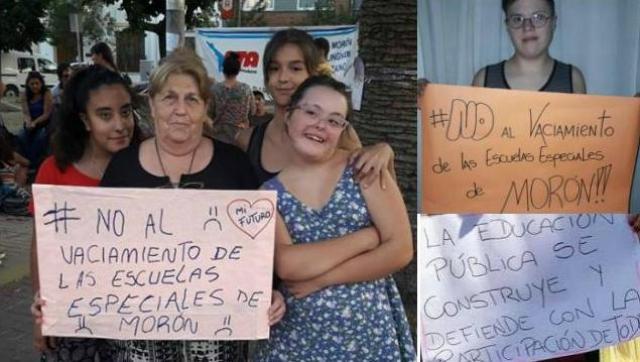 # NO AL
MI
FUTURO
VACIAMIENTO DE
LAS ESCUELAS
ESPECIALES DE
MORÓN
#NO AL VACIAMIENTO
de las Escuelas Especiales
de MORÓN!!!
LA EDUCACIÓN
PÚBLICA SE
CONSTRUYE Y
DEFIENDE CON LA
PARTICIPACIÓN DE TOD
MORÓN